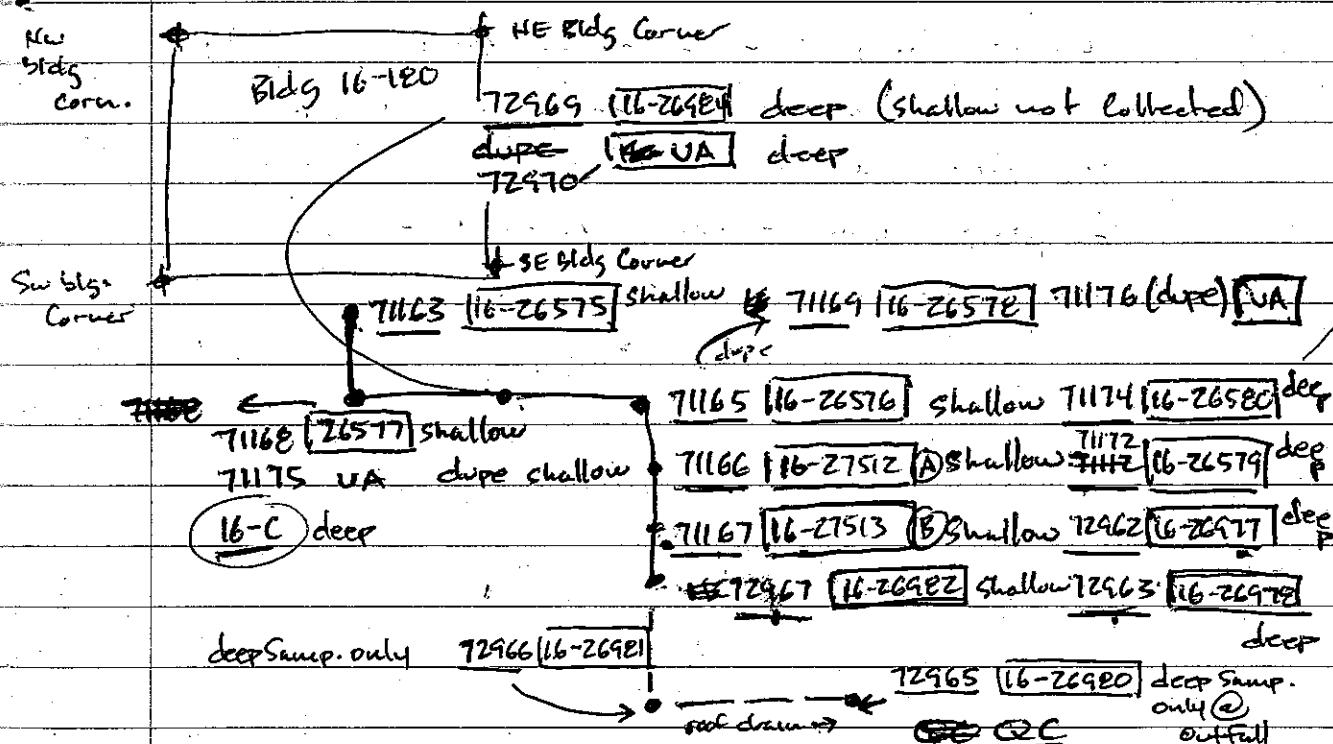 NW Bldg Corn.
NE Bldg Corner
Bldg 16-180
72969 16-26984 deep (shallow not collected)
dupe UA deep
72970
SW bldg. Corner
SE Bldg Corner
71163 16-26575 shallow 71169 16-26578 71176 (dupe) UA
dupe
71165 16-26576 shallow 71174 16-26580 deep
71168 26577 shallow
71172
71166 16-27512 (A) shallow 16-26579 deep
71175 UA dupe shallow
16-C deep
71167 16-27513 (B) shallow 72962 16-26977 deep
72967 16-26982 shallow 72963 16-26978 deep
deep Samp. only 72966 16-26981
72965 16-26980 deep Samp. only @ outfall
roof drain →
QC